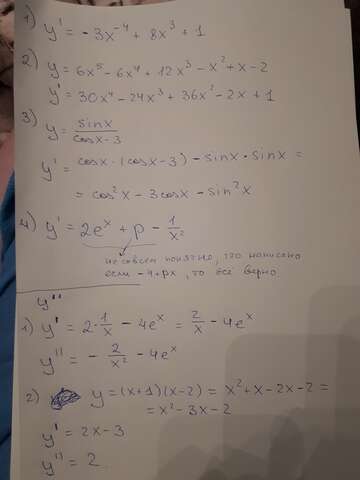 1) y' = -3x⁻⁴ + 8x³ + 1
2) y = 6x⁵ - 6x⁴ + 12x³ - x² + x - 2
y' = 30x⁴ - 24x³ + 36x² - 2x + 1
3) y = sinx / cosx - 3
y' = cosx · (cosx - 3) - sinx · sinx =
= cos²x - 3cosx - sin²x
4) y' = 2eˣ + p - 1/x²
не совсем понятно, что написано
если -4+px, то всё верно
y''
1) y' = 2 · 1/x - 4eˣ = 2/x - 4eˣ
y'' = - 2/x² - 4eˣ
2) y = (x+1)(x-2) = x² + x - 2x - 2 =
= x² - 3x - 2
y' = 2x - 3
y'' = 2